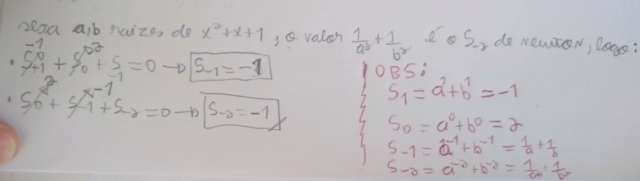 seja a,b raizes de x²+x+1, o valor 1/a² + 1/b² é o S₋₂ de newton, logo:
• S₊₁ + S₀ + S₋₁ = 0 → S₋₁ = -1
• S₀ + S₋₁ + S₋₂ = 0 → S₋₂ = -1
OBS:
S₁ = a¹+b¹ = -1
S₀ = a⁰+b⁰ = 2
S₋₁ = a⁻¹+b⁻¹ = 1/a + 1/b
S₋₂ = a⁻²+b⁻² = 1/a² + 1/b²